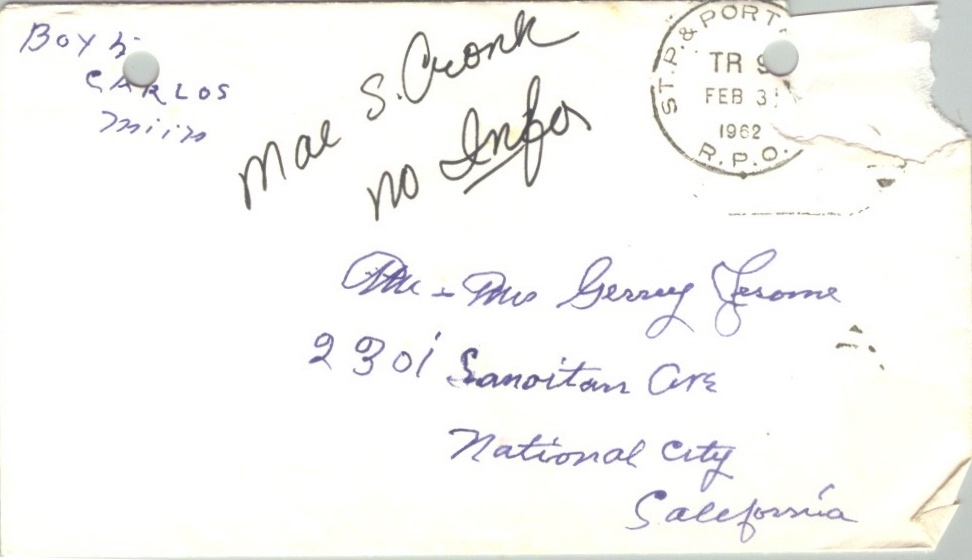 Box 5
CARLOS
Minn
Mae S. Cronk
no Infor
ST. P. & PORT.
TR 9
FEB 3
1962
R.P.O.
Mr - Mrs Gerrey Jerome
2301 Sanoitan Ave
National City
California